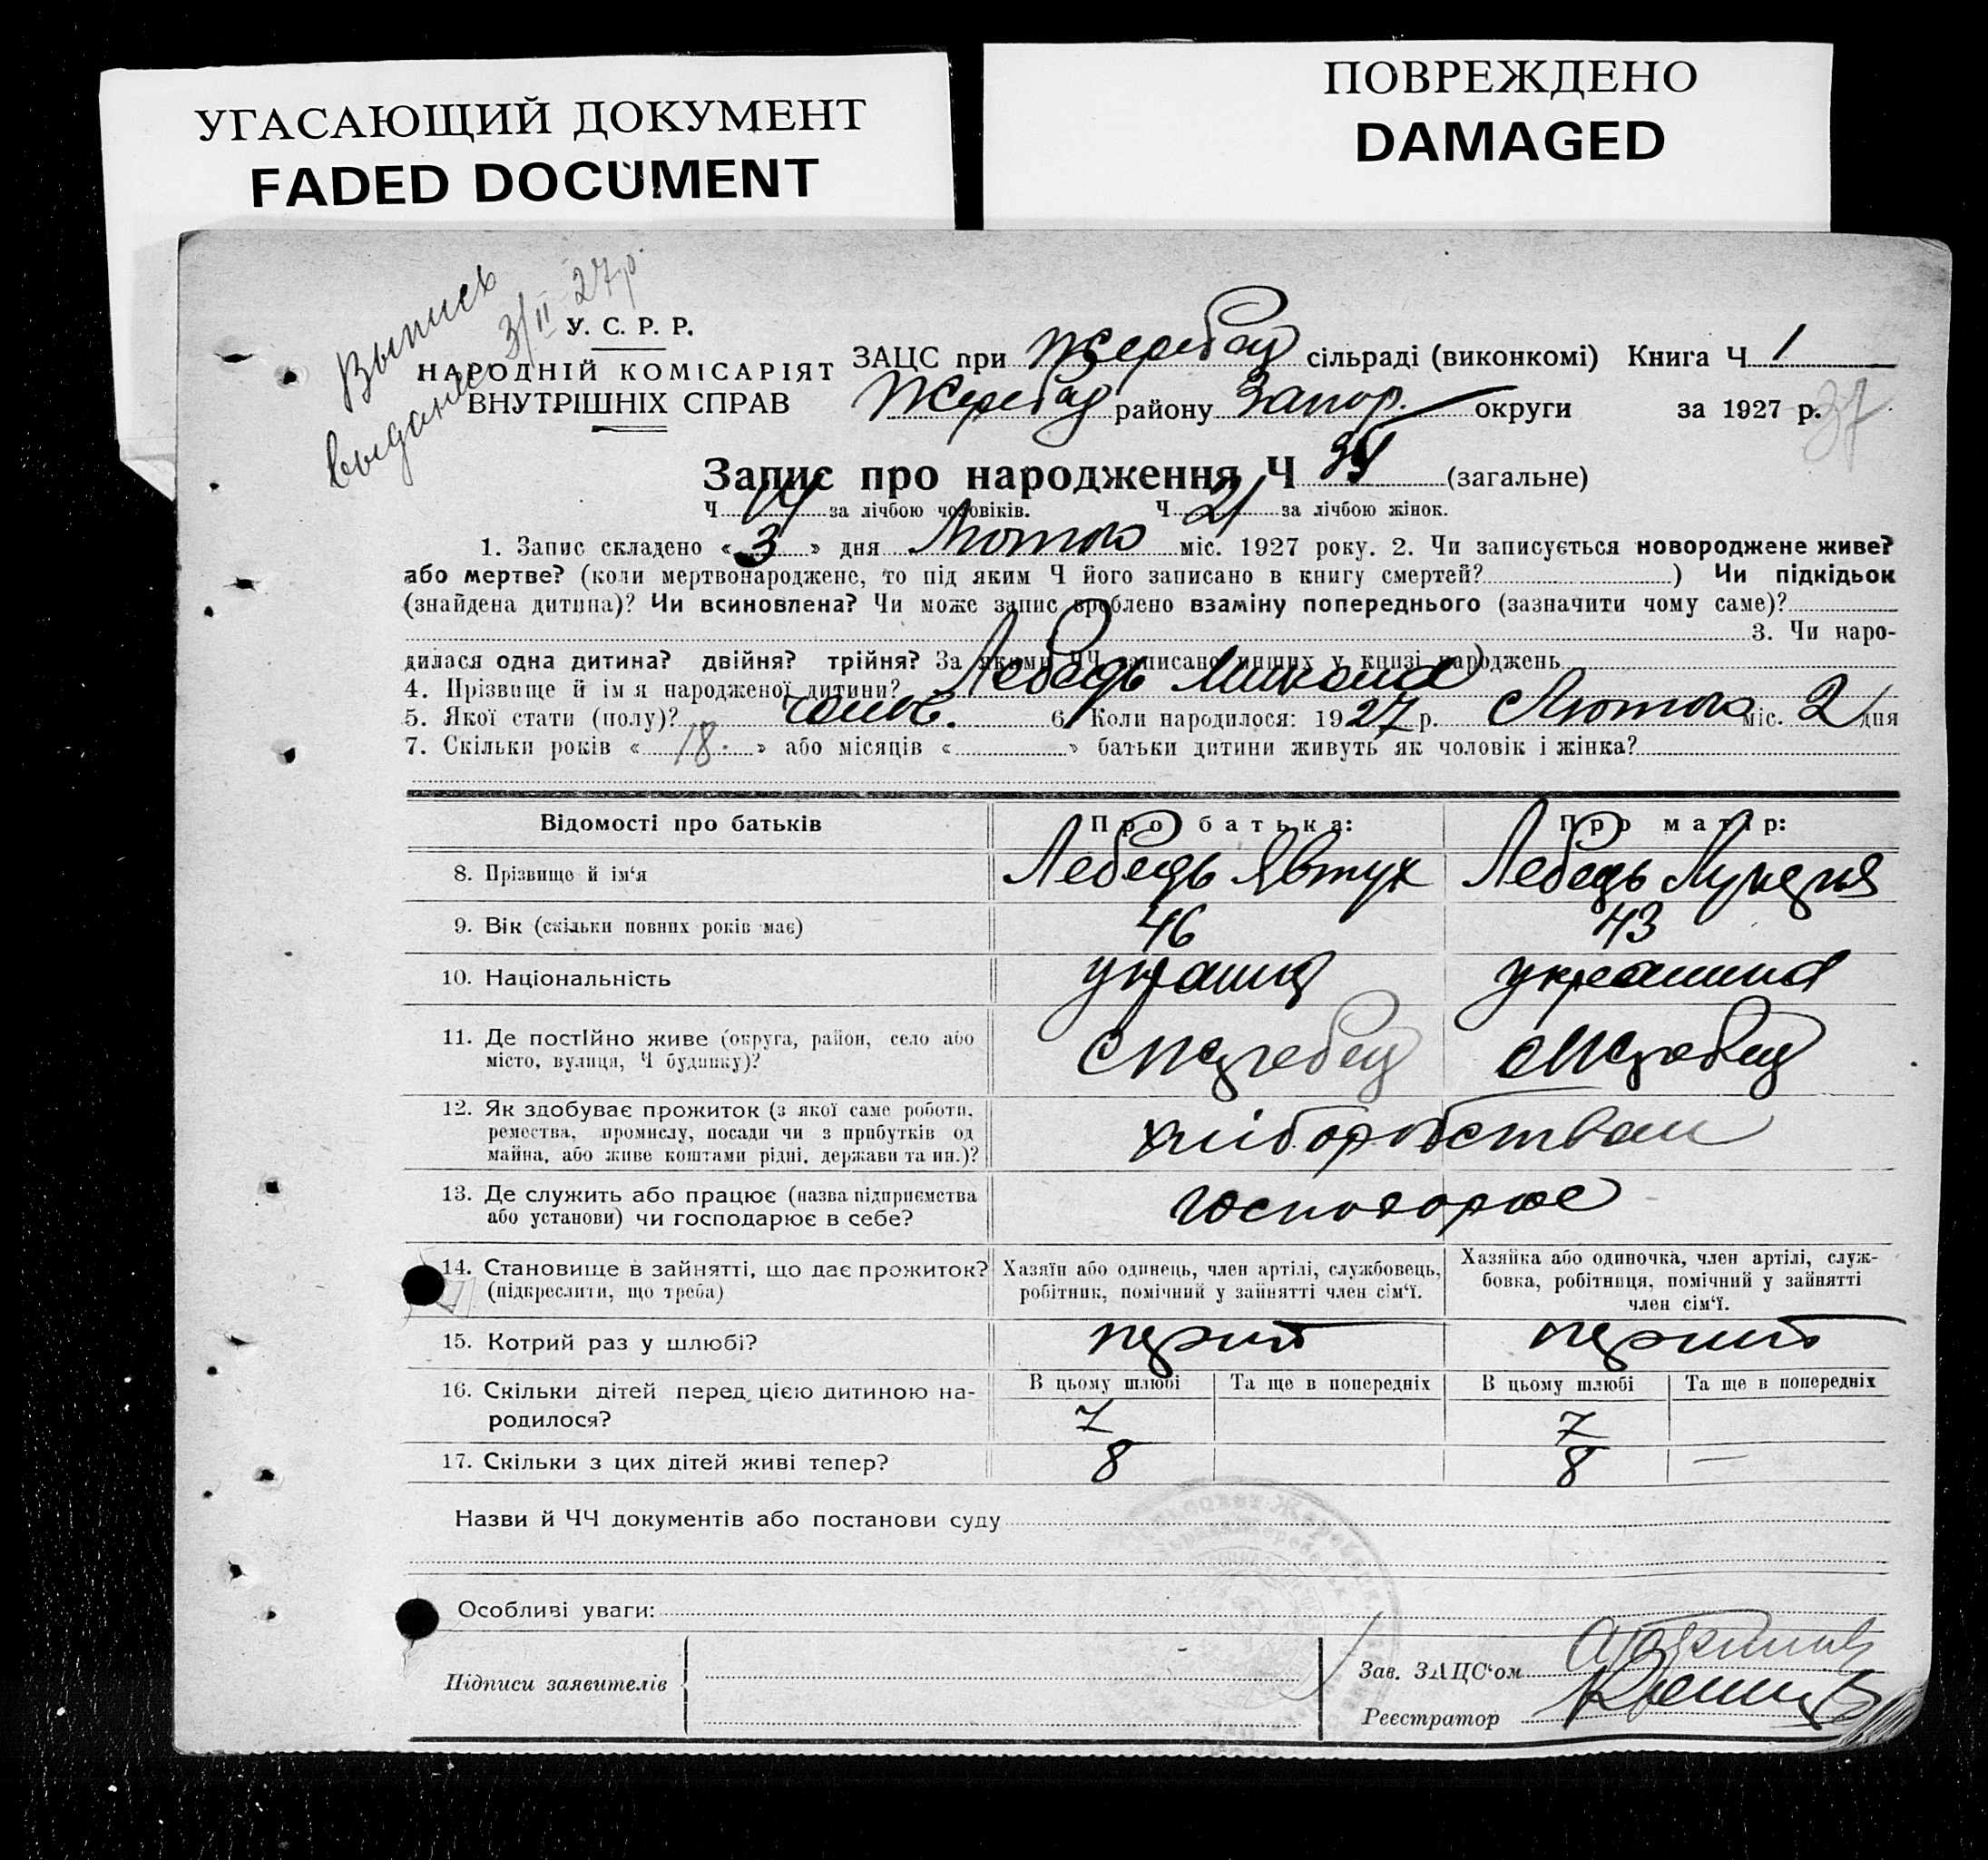 УГАСАЮЩИЙ ДОКУМЕНТ
FADED DOCUMENT
ПОВРЕЖДЕНО
DAMAGED
Выпись
выдана 3/II 27р.
У. С. Р. Р.
НАРОДНІЙ КОМІСАРІЯТ
ВНУТРІШНІХ СПРАВ
ЗАЦС при Жеребец сільраді (виконкомі) Книга Ч 1
Жеребец району Запор. округи за 1927 р. 37
Запис про народження Ч (загальне)
Ч 14 за лічбою чоловіків. Ч 21 за лічбою жінок.
1. Запис складено « 3 » дня Лютого міс. 1927 року. 2. Чи записується новороджене живе?
або мертве? (коли мертвонароджене, то під яким Ч його записано в книгу смертей? ) Чи підкідьок
(знайдена дитина)? Чи всиновлена? Чи може запис зроблено взаміну попереднього (зазначити чому саме)?
3. Чи наро-
дилася одна дитина? двійня? трійня? За якими ЧЧ записано инших у книзі народжень
4. Прізвище й ім я народженої дитини? Лебедь Микола
5. Якої стати (полу)? чолов. 6. Коли народилося: 1927 р. Лютого міс. 2 дня
7. Скільки років « 18 » або місяців « » батьки дитини живуть як чоловік і жінка?
Відомості про батьків Про батька: Про матір:
8. Прізвище й ім‘я Лебедь Явтух Лебедь Лукерия
9. Вік (скільки повних років має) 46 43
10. Національність українец українка
11. Де постійно живе (округа, район, село або
місто, вулиця, Ч будинку)? с Жеребец с Жеребец
12. Як здобуває прожиток (з якої саме роботи,
ремества, промислу, посади чи з прибутків од
майна, або живе коштами рідні, держави та ин.)? хліборобством
13. Де служить або працює (назва підприємства
або установи) чи господарює в себе? господарює
14. Становище в зайнятті, що дає прожиток?
(підкреслити, що треба)
Хазяїн або одинець, член артілі, службовець,
робітник, помічний у зайнятті член сім‘ї.
Хазяйка або одиночка, член артілі, служ-
бовка, робітниця, помічний у зайнятті
член сім‘ї.
15. Котрий раз у шлюбі? первий первий
16. Скільки дітей перед цією дитиною на-
родилося?
В цьому шлюбі Та ще в попередніх В цьому шлюбі Та ще в попередніх
7 7
17. Скільки з цих дітей живі тепер? 8 8 —
Назви й ЧЧ документів або постанови суду
Особливі уваги:
Підписи заявителів
Зав. ЗАЦС‘ом
Реєстратор